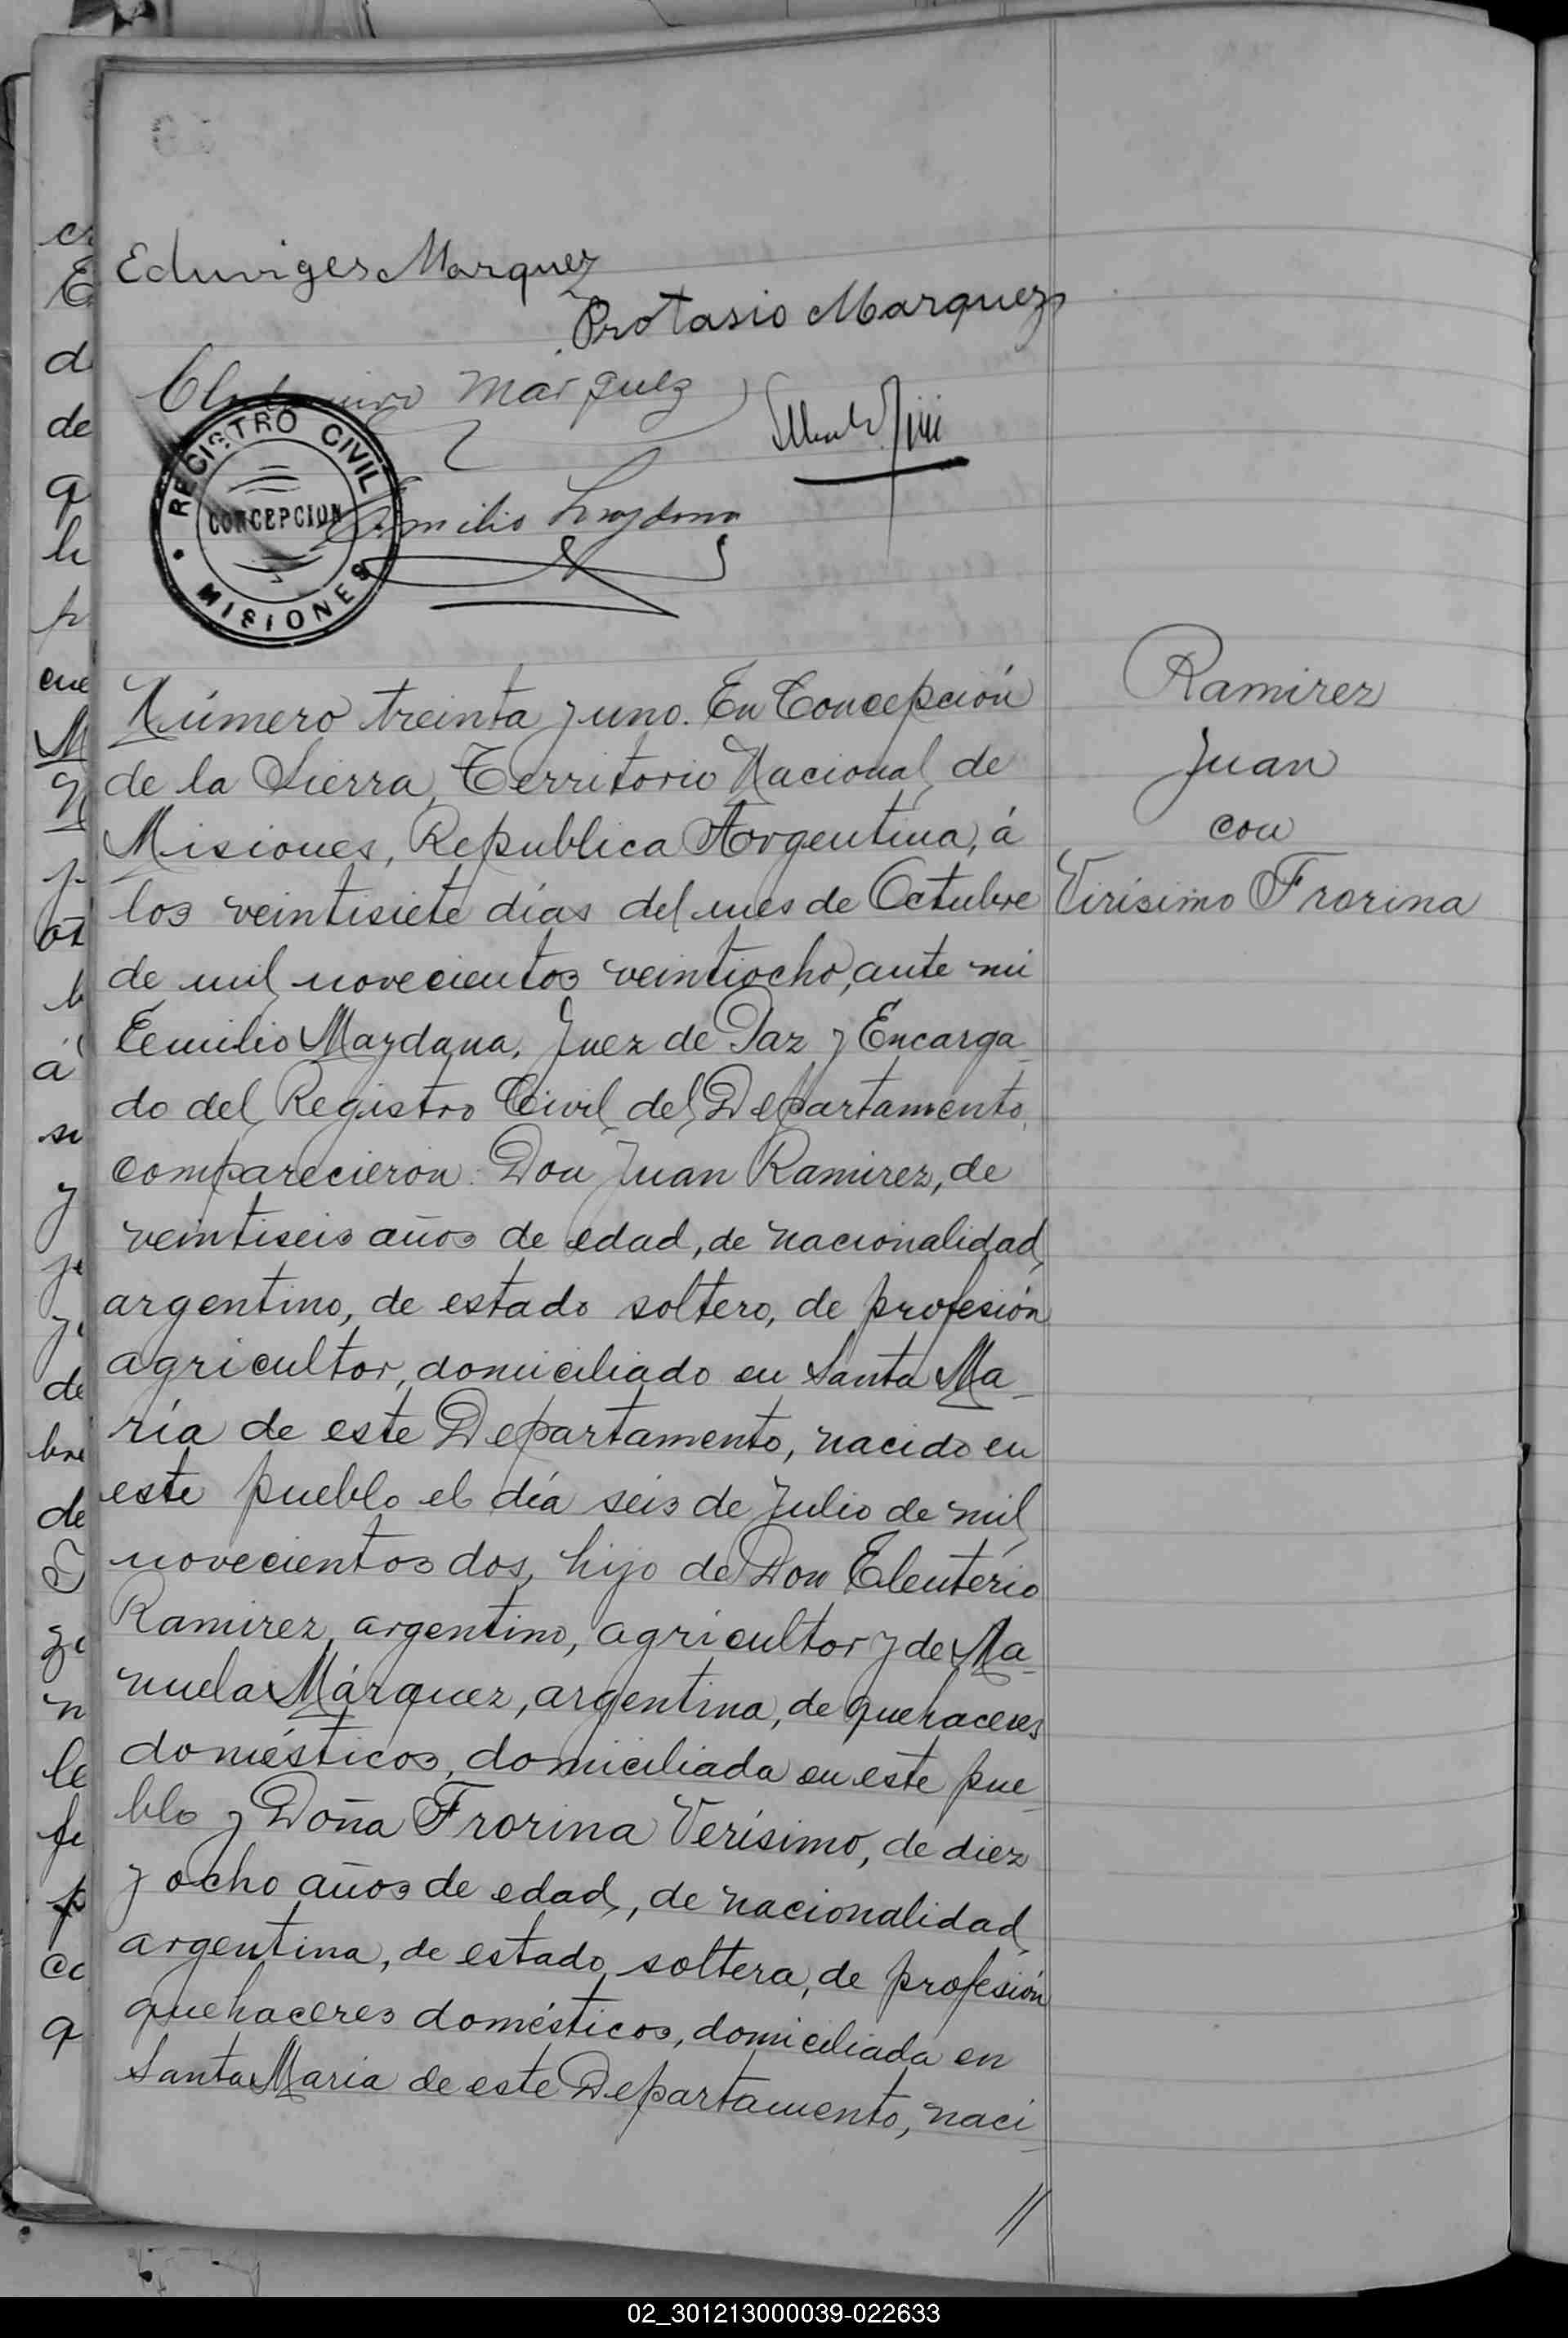 Eduviges Marquez
Protasio Marquez
Márquez
REGISTRO CIVIL
CONCEPCION
MISIONES
Emilio Maydana
Número treinta y uno. En Concepción
de la Sierra, Territorio Nacional de
Misiones, Republica Argentina, á
los veintisiete días del mes de Octubre
de mil novecientos veintiocho, ante mi
Emilio Maydana, Juez de Paz y Encarga-
do del Registro Civil del Departamento,
comparecieron: Don Juan Ramirez, de
veintiseis años de edad, de nacionalidad
argentino, de estado soltero, de profesión
agricultor, domiciliado en Santa Ma-
ría de este Departamento, nacido en
este pueblo el día seis de Julio de mil
novecientos dos, hijo de Don Eleuterio
Ramirez, argentino, agricultor y de Ma-
nuela Márquez, argentina, de quehaceres
domésticos, domiciliada en este pue-
blo y Doña Frorina Verísimo, de diez
y ocho años de edad, de nacionalidad
argentina, de estado soltera, de profesión
quehaceres domésticos, domiciliada en
Santa María de este Departamento, naci-
//
Ramirez
Juan
con
Virísimo Frorina
02_301213000039-022633